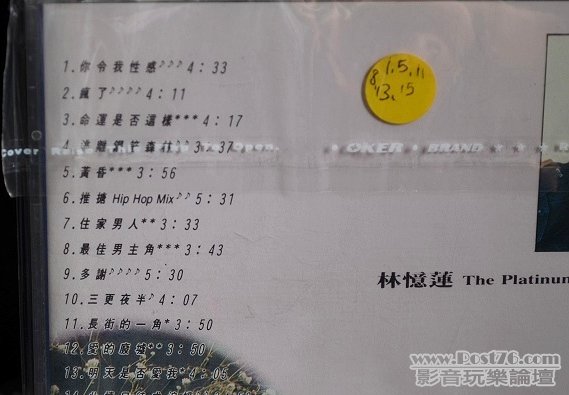 1.你令我性感♪♪♪4:33
2.瘋了♪♪♪♪4:11
3.命運是否這樣***4:17
4.逃離鋼筋森林♪♪3:37
5.黃昏***3:56
6.推搪 Hip Hop Mix♪♪5:31
7.住家男人**3:33
8.最佳男主角***3:43
9.多謝♪♪♪♪5:30
10.三更夜半♪4:07
11.長街的一角*3:50
12.愛的廢墟**3:50
13.明天是否愛我*4:05
1.5.11
8
13.15
Cover
Open.
• OKER • BRAND
林憶蓮 The Platinum
www.Post76.com
影音玩樂論壇